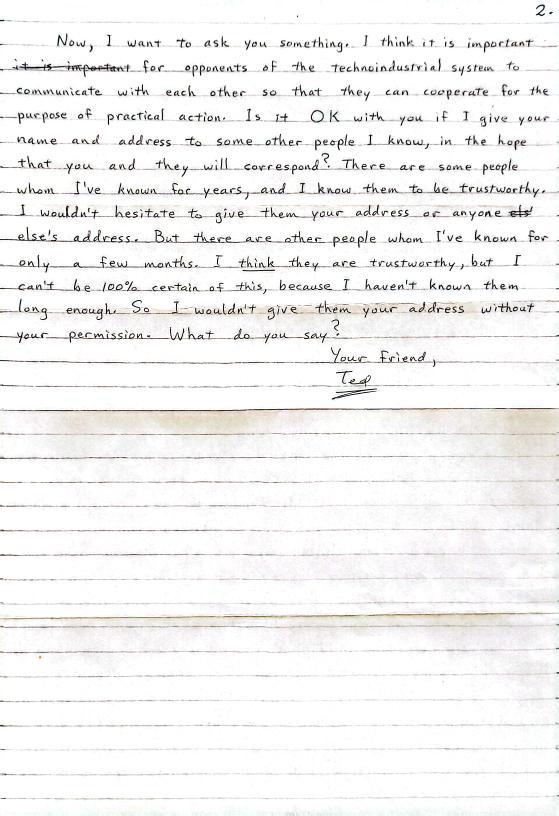 2.
Now, I want to ask you something. I think it is important
it is important for opponents of the technoindustrial system to
communicate with each other so that they can cooperate for the
purpose of practical action. Is it OK with you if I give your
name and address to some other people I know, in the hope
that you and they will correspond? There are some people
whom I've known for years, and I know them to be trustworthy.
I wouldn't hesitate to give them your address or anyone els'
else's address. But there are other people whom I've known for
only a few months. I think they are trustworthy, but I
can't be 100% certain of this, because I haven't known them
long enough. So I wouldn't give them your address without
your permission. What do you say?
Your friend,
Ted